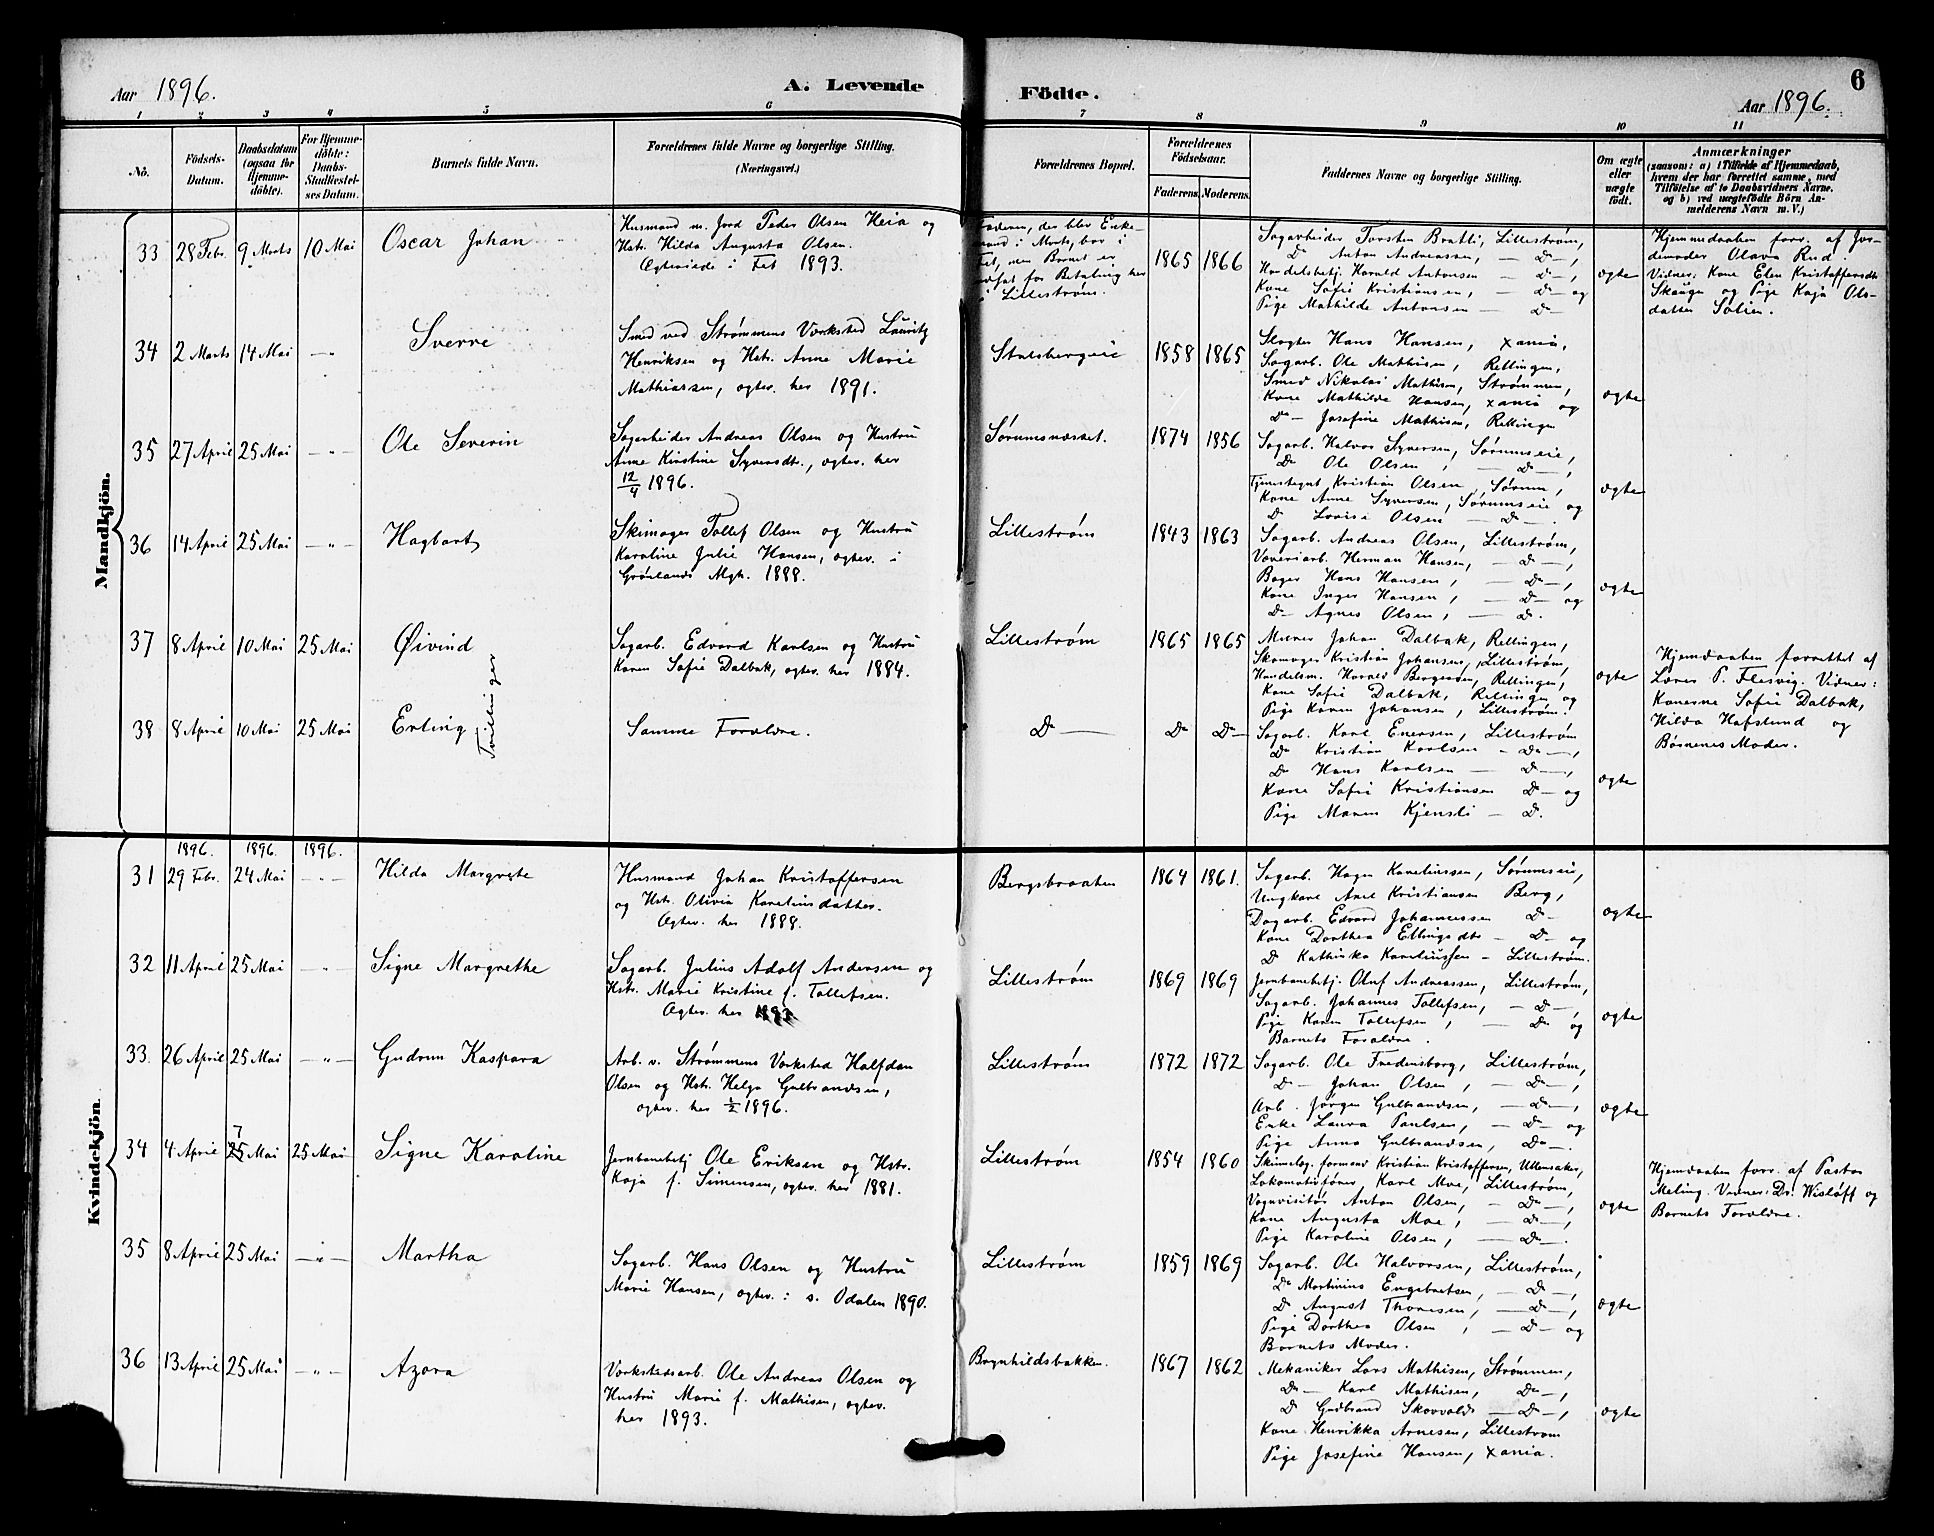 Aar 1896.
A. Levende
Födte.
6
Aar 1896.
1 2 3 4 5 6 7 8 9 10 11
No.
Födsels-
Datum.
Daabsdatum
(ogsaa for
Hjemme-
döbte).
For Hjemme-
döbte:
Daabs-
Stadfæstel-
ses Datum.
Barnets fulde Navn.
Forældrenes fulde Navne og borgerlige Stilling.
(Næringsvei.)
Forældrenes Bopæl.
Forældrenes
Födselsaar.
Faderens. Moderens.
Faddernes Navne og borgerlige Stilling.
Om ægte
eller
uægte
födt.
Anmærkninger
(saasom: a) i Tilfælde af Hjemmedaab,
hvem der har forrettet samme, med
Tilföielse af to Daabsvidners Navne.
og b) ved uægtefödte Börn An-
melderens Navn m. V.)
Mandkjön.
33 28 Febr. 9 Marts 10 Mai Oscar Johan
Husmand m. Jord Peder Olsen Heia og
Hstr. Hilda Augusta Olsen.
Ægteviede i Fet 1893.
Faderen, der blev Enke
mand i Marts, bor i
Fet, men Barnet er
udsat for Betaling her
i Lillestrøm.
1865 1866
Sagarbeider Torsten Bratli, Lillestrøm,
Do Anton Andreassen, — D —,
Handelsbetj. Harald Antonsen — D —,
Kone Sofie Kristiansen, — D — og
Pige Mathilde Antonsen — D —
ægte
Hjemmedaaben forr. af Jor-
demoder Olava Rud.
Vidner: Kone Elen Kristoffersdtr
Skaug og Pige Kaja Ols-
datter Solien.
34 2 Marts 14 Mai — " Sverre
Smed ved Strømmens Værksted Lauritz
Henriksen og Hstr. Anne Marie
Mathiassen, ægtev. her 1891.
Stalsbergeie 1858 1865
Slagter Hans Hansen, Xania,
Sagarb. Ole Mathisen, Rellingen,
Smed Nikolai Mathisen, Strømmen,
Kone Mathilde Hansen, Xania og
Do — Josefine Mathisen, Rellingen
ægte
35 27 April 25 Mai — " — Ole Severin
Sagarbeider Andreas Olsen og Hustru
Anne Kirstine Syversdtr., ægtev. her
12/4 1896.
Sørumsnæsset. 1874 1856
Sagarb. Halvor Syversen, Sørumseie,
Do Ole Olsen, — D —,
Tjenestegut Kristian Olsen, Sørum,
Kone Anne Syversen, Sørumseie og
D Lovise Olsen — D —.
ægte
36 14 April 25 Mai — " — Hagbart
Skomager Tollef Olsen og Hustru
Karoline Julie Hansen, ægtev. i
Grønlands Mgh. 1888.
Lillestrøm 1843 1863
Sagarb. Andreas Olsen, Lillestrøm,
Væveriarb. Herman Hansen, — D —,
Bager Hans Hansen, — D —,
Kone Inger Hansen, — D — og
D — Agnes Olsen, — D.
ægte
37 8 April 10 Mai 25 Mai Øivind
Tvillinger
Sagarb. Edvard Karlsen og Hustru
Karen Sofie Dalbak, ægtev. her 1884.
Lillestrøm 1865 1865
Murer Johan Dalbak, Rellingen,
Skomager Kristian Johansen, Lillestrøm,
Handelsm. Harald Bergersen, Rellingen,
Kone Sofie Dalbak, Rellingen og
Pige Karen Johansen, Lillestrøm.
ægte
Hjemdaaben forrettet af
Lærer P. Flesvig. Vidner:
Konerne Sofie Dalbak,
Hilda Hafslund og
Børnenes Moder.
38 8 April 10 Mai 25 Mai Erling
Samme Forældre.
D — Do D —
Sagarb. Karl Enersen, Lillestrøm
Do Kristian Karlsen — D —,
Do Hans Karlsen — D —,
Kone Sofie Kristiansen D — og
Pige Maren Kjensli — D.
ægte
Kvindekjön.
1896. 1896. 1896.
31 29 Febr. 24 Mai — " — Hilda Margrete
Husmand Johan Kristoffersen
og Hstr. Olivia Karelinsdatter.
Ægtev. her 1888.
Bergsbraaten 1864 1861.
Sagarb. Hagen Kareliussen, Sørumseie,
Ungkarl Axel Kristiansen Berg,
Dagarb. Edvard Johannessen D —
Kone Dorthea Ellingsdtr — D — og
D Kathinka Kareliussen — Lillestrøm.
ægte
32 11 April 25 Mai — " — Signe Margrethe
Sagarb. Julius Adolf Andersen og
Hstr. Marie Kristine f. Tollefsen.
Ægtev. her 1893.
Lillestrøm 1869 1869
Jernbanebetj. Oluf Andreassen, Lillestrøm,
Sagarb. Johannes Tollefsen, — D —,
Pige Karen Tollefsen, — Do og
Barnets Forældre.
ægte
33. 26 April 25 Mai — " — Gudrun Kaspara
Arb. v. Strømmens Værksted Halfdan
Olsen og Hstr. Helga Gulbrandsen,
ægtev. her 1/2 1896.
Lillestrøm 1872 1872
Sagarb. Ole Fredensborg, Lillestrøm,
D — Johan Olsen, — Do —,
Arb. Jørgen Gulbrandsen, — D —,
Enke Laura Paulsen, — D — og
Pige Anna Gulbrandsen, Do —.
ægte
34 4 April 7 25 Mai 25 Mai Signe Karoline
Jernbanebetj Ole Eriksen og Hstr.
Kaja f. Simensen, ægtev. her 1881.
Lillestrøm 1854 1860
Skinnelæg. formand Kristian Kristoffersen, Ullensaker,
Lokomotivfører Karl Moe, Lillestrøm,
Vognvisitør Anton Olsen, — Do —,
Kone Augusta Moe, — D —,
Pige Karoline Olsen, — Do —.
ægte
Hjemdaaben forr. af Pastor
Meling. Vidner: Dr. Wisløff og
Barnets Forældre.
35 8 April 25 Mai — " — Martha
Sagarb. Hans Olsen og Hustru
Marie Hansen, ægtev. i s. Odalen 1890.
Lillestrøm 1859 1869
Sagarb. Ole Halvorsen, Lillestrøm,
Do Martinius Engebretsen, — D —,
D August Thoresen, — D —,
Pige Dorthea Olsen, — D — og
Barnets Moder.
ægte
36 13 April 25 Mai — " — Azora
Værkstedsarb. Ole Andreas Olsen og
Hustru Marie f. Mathisen, ægtev.
her 1893.
Brynhildsbakken. 1867 1862
Mekaniker Lars Mathisen, Strømmen,
D — Karl Mathisen, Do —,
D Gudbrand Skovvold — D —,
Kone Henrikka Arnesen, Lillestrøm
Pige Josefine Hansen, Xania.
ægte